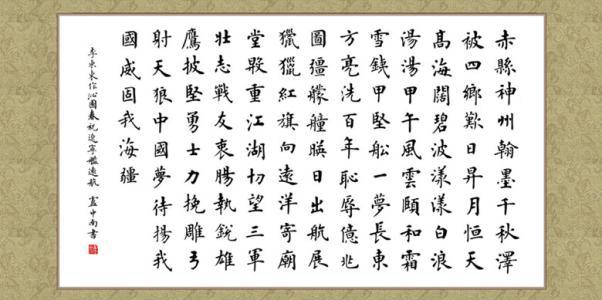 赤縣神州翰墨千秋澤
被四鄉歎日昇月恒天
高海闊碧波漾漾白浪
湯湯甲午風雲頤和霜
雪鐵甲堅船一夢長東
方亮洗百年恥辱億兆
圖彊艨艟暎日出航展
獵獵紅旗向遠洋寄廟
堂殷重江湖切望三軍
壯志戰友衷腸執銳雄
鷹披堅勇士力挽雕弓
射天狼中國夢待揚我
國威固我海疆
李東東作沁園春祝遼寧艦遠航 盧中南書